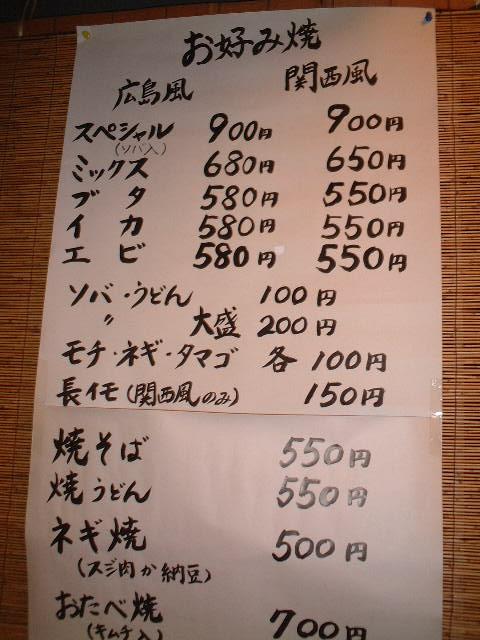 お好み焼
広島風 関西風
スペシャル 900円 900円
(ソバ入)
ミックス 680円 650円
ブタ 580円 550円
イカ 580円 550円
エビ 580円 550円
ソバ・うどん 100円
〃 大盛 200円
モチ・ネギ・タマゴ 各100円
長イモ(関西風のみ) 150円
焼そば 550円
焼うどん 550円
ネギ焼 500円
(スジ肉か納豆)
おたべ焼 700円
(キムチ入)